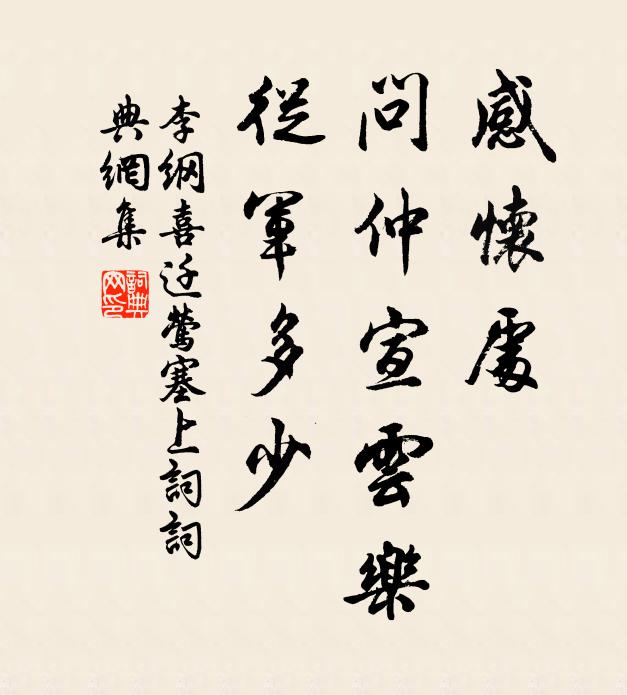 感懷處
問仲宣雲樂
從軍多少
李綱喜迁鶯塞上詞詞
典網集
詞典
网印